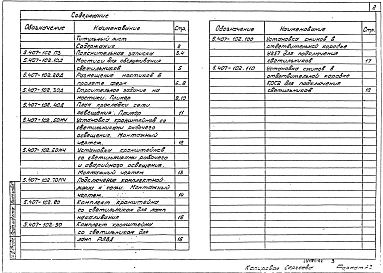 Содержание
Обозначение Наименование Стр.
Титульный лист
Содержание 2
5.407-102.ПЗ Пояснительная записка 3,4
5.407-102.10Д Мостики для обслуживания
светильников 5
5.407-102.20Д Размещение мостиков в
пролете цеха 6..8
5.407-102.30Д Строительное задание на
мостики. Пример 9,10
5.407-102.40Д План прокладки сети
освещения. Пример 11
5.407-102.50МЧ Установка кронштейнов со
светильниками рабочего
освещения. Монтажный
чертеж. 12
5.407-102.60МЧ Установка кронштейнов
со светильниками рабочего
и аварийного освещения.
Монтажный чертеж 13
5.407-102.70МЧ Подключение комплектной
линии к сети. Монтажный
чертеж.
5.407-102.80 Комплект кронштейна
со светильником для ламп
накаливания 15
5.407-102.90 Комплект кронштейна
со светильником для
ламп 16
Обозначение Наименование Стр.
5.407-102.100 Установка стипов в
ответвительной коробке
У257 для подключения
светильников 17
5.407-102.110 Установка стипов в
ответвительной коробке
для подключения
светильников 18
2
3
Копировал Сергеева Формат